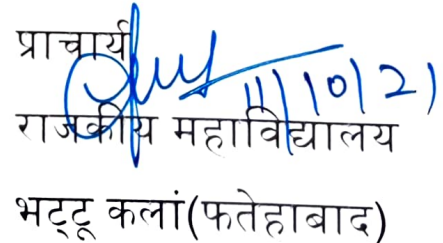 प्राचार्य
11/10/21
राजकीय महाविद्यालय
भट्टू कलां(फतेहाबाद)